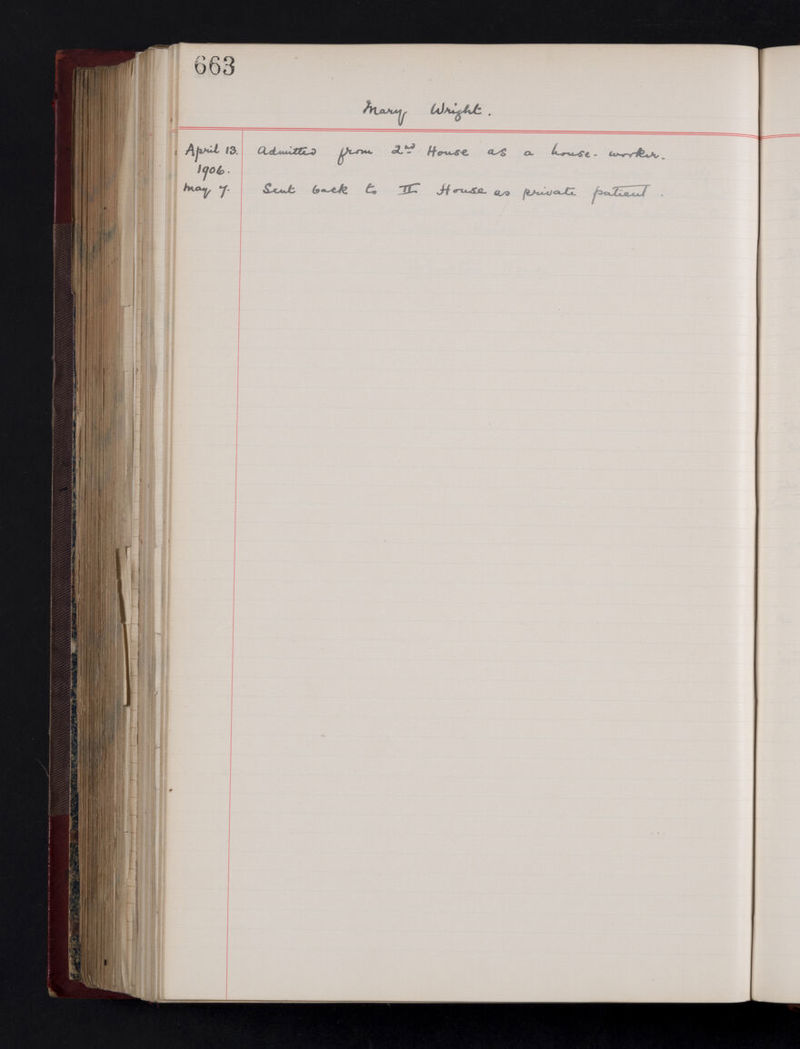 663
Mary Wright.
April 13. Admitted from 2nd House as a house-worker.
1906.
May 7. Sent back to II House as private patient.